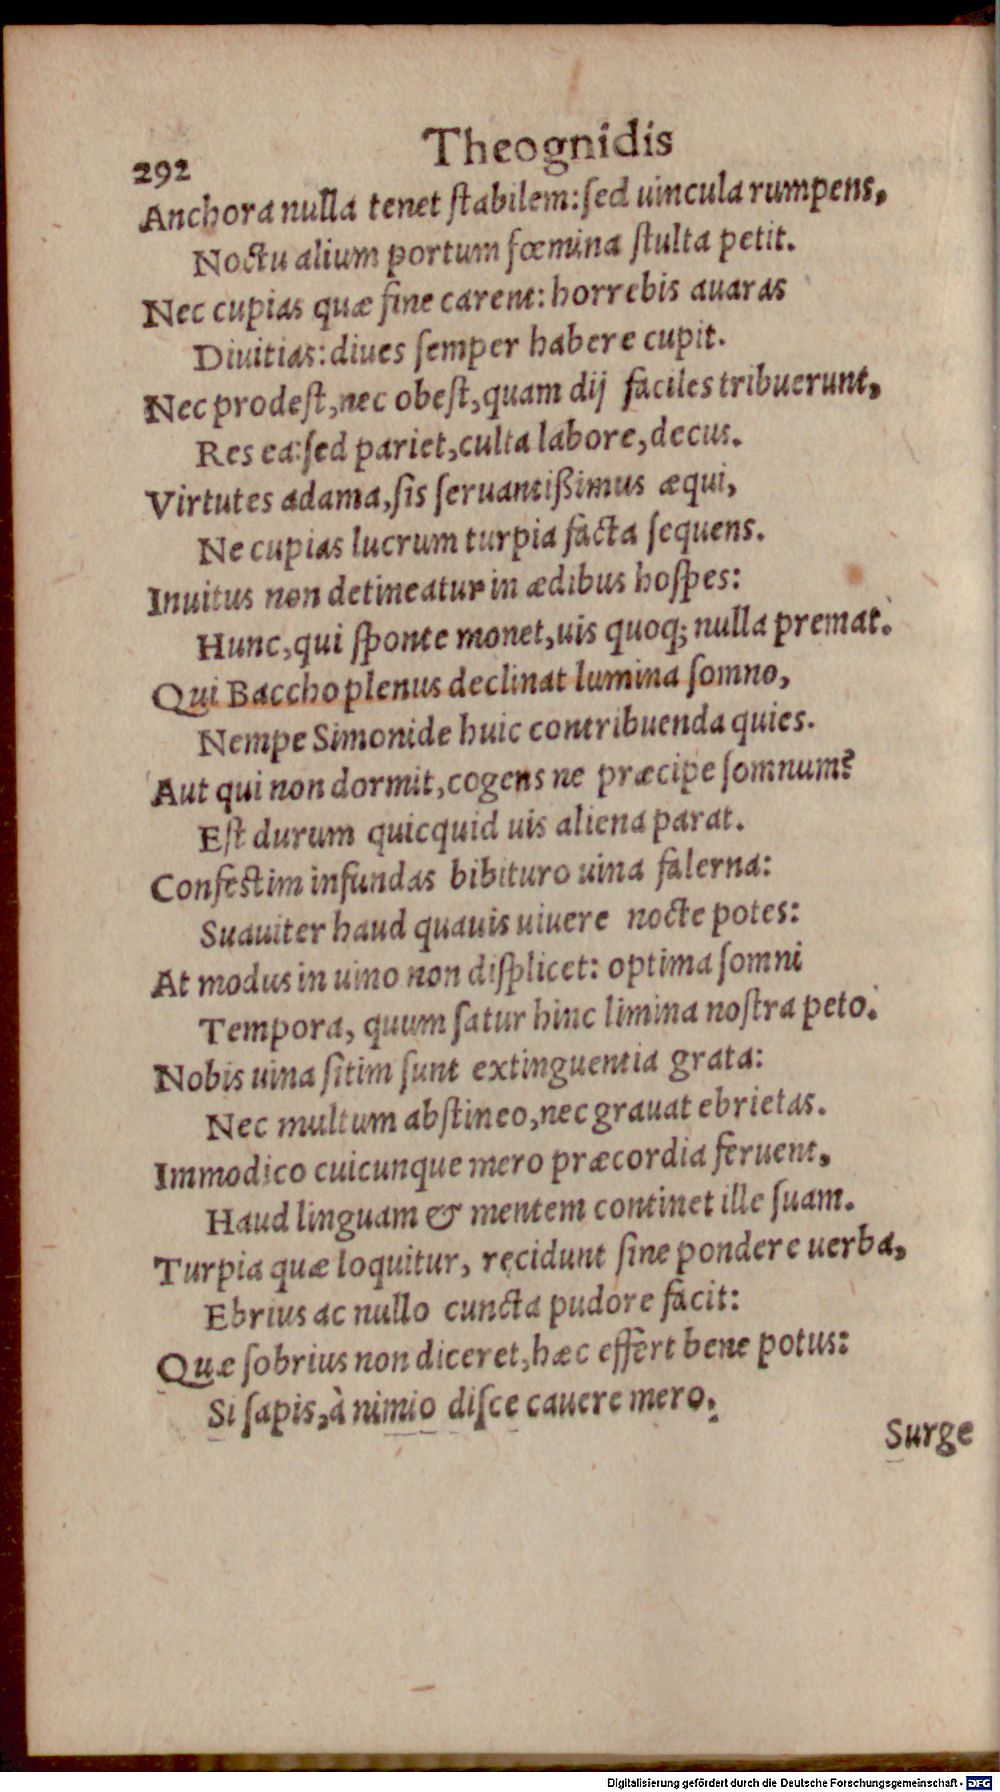 292
Theognidis
Anchora nulla tenet ſtabilem: ſed uincula rumpens,
Noctu alium portum fœmina ſtulta petit.
Nec cupias quæ fine carent: horrebis auaras
Diuitias: diues ſemper habere cupit.
Nec prodeſt, nec obeſt, quam dij faciles tribuerunt,
Res ea: ſed pariet, culta labore, decus.
Virtutes adama, ſis ſeruantißimus æqui,
Ne cupias lucrum turpia facta ſequens.
Inuitus non detineatur in ædibus hoſpes:
Hunc, qui ſponte monet, uis quoq; nulla premat.
Qui Baccho plenus declinat lumina ſomno,
Nempe Simonide huic contribuenda quies.
Aut qui non dormit, cogens ne præcipe ſomnum?
Eſt durum quicquid uis aliena parat.
Confeſtim infundas bibituro uina falerna:
Suauiter haud quauis uiuere nocte potes:
At modus in uino non diſplicet: optima ſomni
Tempora, quum ſatur hinc limina noſtra peto.
Nobis uina ſitim ſunt extinguentia grata:
Nec multum abſtineo, nec grauat ebrietas.
Immodico cuicunque mero præcordia feruent,
Haud linguam & mentem continet ille ſuam.
Turpia quæ loquitur, recidunt ſine pondere uerba,
Ebrius ac nullo cuncta pudore facit:
Quæ ſobrius non diceret, hæc effert bene potus:
Si ſapis, à nimio diſce cauere mero.
Surge
Digitalisierung gefördert durch die Deutsche Forschungsgemeinschaft - DFG